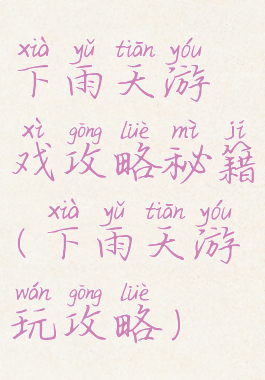 xià yǔ tiān yóu
下雨天游
xì gōng lüè mì jí
戏攻略秘籍
xià yǔ tiān yóu
(下雨天游
wán gōng lüè
玩攻略)